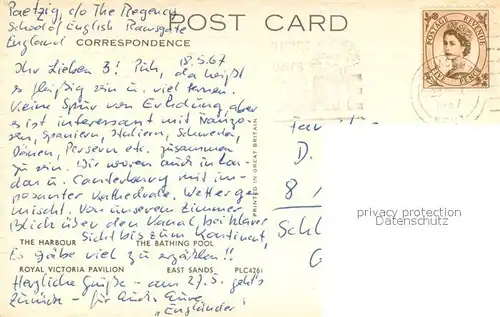 Paetzig, c/o The Regency
School of English Ramsgate
England
POST CARD
CORRESPONDENCE
18.5.67
Ihr Lieben 3! Puh, da heißt
es fleißig sein u. viel lernen.
Keine Spur von Erholung, aber
es ist interessant mit Franzo-
sen, Spaniern, Italiern, Schweden,
Dänen, Persern etc. zusammen
zu sein. Wir waren auch in Lon-
don u. Canterbury mit im-
posanter Kathedrale. Wetter ge-
mischt. Von unserem Zimmer
Blick über den Kanal, bei klarer
Sicht bis zum Kontinent,
Es gäbe viel zu erzählen!!
Herzliche Grüße - am 27.5. geht's
zurück - für
"Engländer"
THE HARBOUR THE BATHING POOL
ROYAL VICTORIA PAVILION EAST SANDS PLC4261
PRINTED IN GREAT BRITAIN
POSTAGE REVENUE
D.
8
Schl
privacy protection
Datenschutz